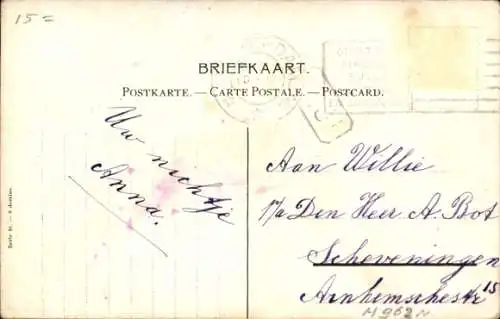 15 =
BRIEFKAART.
POSTKARTE. — CARTE POSTALE. — POSTCARD.
Uw nichtje
Anna.
Aan Willie
p/a Den Heer A. Bot
Scheveningen
Arnhemschestr 15